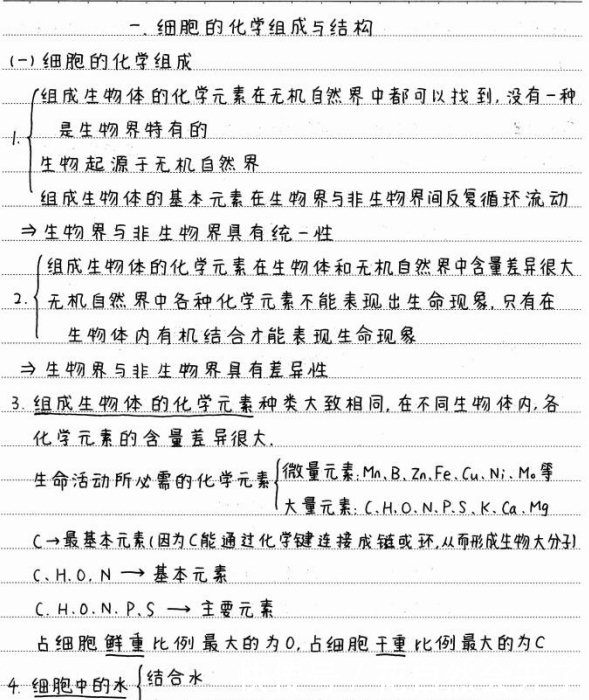 一. 细胞的化学组成与结构
(一) 细胞的化学组成
1. 组成生物体的化学元素在无机自然界中都可以找到, 没有一种
是生物界特有的
生物起源于无机自然界
组成生物体的基本元素在生物界与非生物界间反复循环流动
⇒ 生物界与非生物界具有统一性
2. 组成生物体的化学元素在生物体和无机自然界中含量差异很大
无机自然界中各种化学元素不能表现出生命现象, 只有在
生物体内有机结合才能表现生命现象
⇒ 生物界与非生物界具有差异性
3. 组成生物体的化学元素种类大致相同, 在不同生物体内, 各
化学元素的含量差异很大.
生命活动所必需的化学元素
微量元素: Mn、B、Zn、Fe、Cu、Ni、Mo 等
大量元素: C、H、O、N、P、S、K、Ca、Mg
C → 最基本元素 (因为C能通过化学键连接成链或环, 从而形成生物大分子)
C、H、O、N → 基本元素
C、H、O、N、P、S → 主要元素
占细胞鲜重比例最大的为O, 占细胞干重比例最大的为C
4. 细胞中的水 结合水